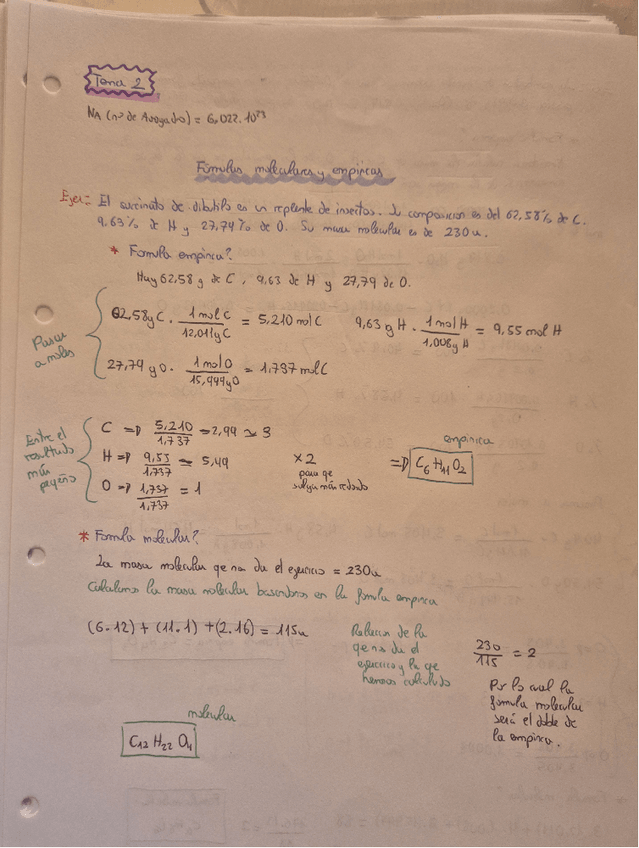 Tema 2
NA (nº de Avogado) = 6,022.10²³
Fórmulas moleculares y empíricas
Ejer: El succinato de dibutilo es un replente de insectos. Su composicion es del 62,58% de C.
9,63% de H y 27,79% de O. Su masa molecular es de 230u.
* Formula empírica?
Hay 62,58 g de C, 9,63 de H y 27,79 de O.
Pasar a moles
62,58g C · 1 mol C / 12,011g C = 5,210 mol C 9,63 g H · 1 mol H / 1,008g H = 9,55 mol H
27,79 g O · 1 mol O / 15,999g O = 1,737 mol C
Entre el resultado más pequeño
C => 5,210 / 1,737 = 2,99 ≃ 3
H => 9,55 / 1,737 = 5,49
O => 1,737 / 1,737 = 1
x2
para qe
salga más redondo
empirica
=> C6 H11 O2
* Formula molecular?
La masa molecular qe nos da el ejercicio = 230u
Calculamos la masa molecular basandonos en la fórmula empirica
(6.12) + (11.1) + (2.16) = 115u
Relacion de la
qe nos da el
ejercicio y la qe
hemos calculado
230 / 115 = 2
Por lo cual la
fórmula molecular
será el doble de
la empirica.
molecular
C12 H22 O4